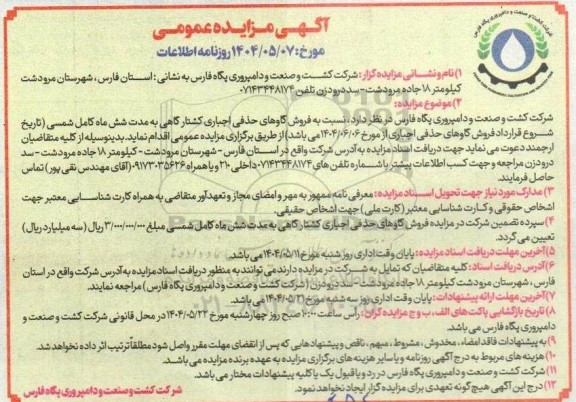 آگهی مزایده عمومی
مورخ: ۱۴۰۴/۰۵/۰۷ روزنامه اطلاعات
۱) نام و نشانی مزایده گزار: شرکت کشت و صنعت و دامپروری پگاه فارس به نشانی: استان فارس، شهرستان مرودشت
کیلومتر ۱۸ جاده مرودشت - سد درودزن تلفن ۰۷۱۴۳۴۴۸۱۷۴
۲) موضوع مزایده:
شرکت کشت و صنعت و دامپروری پگاه فارس در نظر دارد، نسبت به فروش گاوهای حذفی اجباری کشتار گاهی به مدت شش ماه کامل شمسی (تاریخ
شروع قرارداد فروش گاوهای حذفی اجباری از مورخ ۱۴۰۴/۰۶/۰۶ می باشد) از طریق برگزاری مزایده عمومی اقدام نماید. بدینوسیله از کلیه متقاضیان
ارجمند دعوت می نماید جهت دریافت اسناد مزایده به آدرس شرکت واقع در استان فارس - شهرستان مرودشت - کیلومتر ۱۸ جاده مرودشت - سد
درودزن مراجعه و جهت کسب اطلاعات بیشتر با شماره تلفن های ۰۷۱۴۳۴۴۸۱۷۴ داخلی ۲۰ و یا همراه ۰۹۱۷۳۰۳۵۶۲۶ (آقای مهندس نقی پور) تماس
حاصل فرمایند.
۳) مدارک مورد نیاز جهت تحویل اسناد مزایده: معرفی نامه ممهور به مهر و امضای مجاز و تعهدآور متقاضی به همراه کارت شناسایی معتبر جهت
اشخاص حقوقی و کارت شناسایی معتبر (کارت ملی) جهت اشخاص حقیقی.
۴) سپرده تضمین شرکت در مزایده فروش گاوهای حذفی اجباری کشتار گاهی به مدت شش ماه کامل شمسی مبلغ ۳/۰۰۰/۰۰۰/۰۰۰ ریال (سه میلیارد ریال)
تعیین می گردد.
۵) آخرین مهلت دریافت اسناد مزایده: پایان وقت اداری روز شنبه مورخ ۱۴۰۴/۰۵/۱۱ می باشد.
۶) آدرس دریافت اسناد: کلیه متقاضیان که تمایل به شرکت در مزایده دارند می توانند به منظور دریافت اسناد مزایده به آدرس شرکت واقع در استان
فارس، شهرستان مرودشت کیلومتر ۱۸ جاده مرودشت - سد درودزن (شرکت کشت و صنعت و دامپروری پگاه فارس) مراجعه نمایند.
۷) آخرین مهلت ارائه پیشنهادات: پایان وقت اداری روز سه شنبه مورخ ۱۴۰۴/۰۵/۲۱ می باشد.
۸) تاریخ بازگشایی پاکت های الف، ب و ج مزایده گران: رأس ساعت ۱۰:۰۰ صبح روز چهارشنبه مورخ ۱۴۰۴/۰۵/۲۲ در محل قانونی شرکت کشت و صنعت و
دامپروری پگاه فارس می باشد.
۹) به پیشنهادات فاقد امضاء، مخدوش، مشروط، مبهم، ناقص و پیشنهادهایی که پس از انقضای مهلت مقرر واصل شود مطلقاً ترتیب اثر داده نخواهد شد.
۱۰) هزینه های مربوط به درج آگهی روزنامه و یا سایر هزینه های برگزاری مزایده به عهده برنده مزایده می باشد.
۱۱) شرکت کشت و صنعت و دامپروری پگاه فارس در رد و یا قبول یک یا کلیه پیشنهادات مختار می باشد.
۱۲) درج این آگهی هیچ گونه تعهدی برای مزایده گزار ایجاد نخواهد نمود.
شرکت کشت و صنعت و دامپروری پگاه فارس